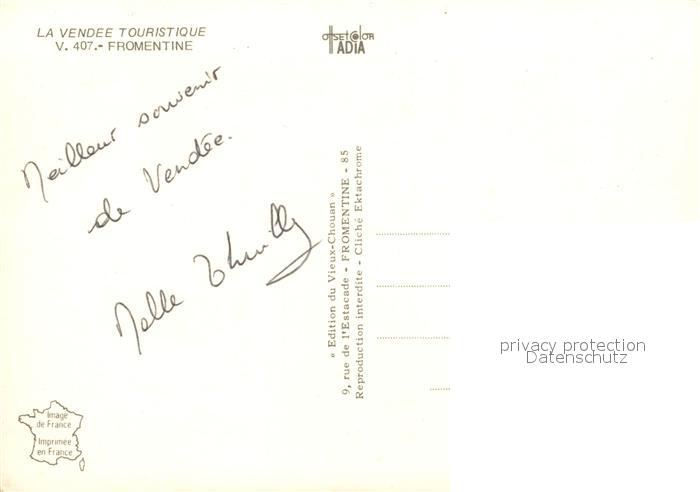 LA VENDEE TOURISTIQUE
V. 407.- FROMENTINE
OFFSETCOLOR
ADIA
Meilleur souvenir
de Vendée.
Melle
« Edition du Vieux-Chouan »
9, rue de l'Estacade - FROMENTINE - 85
Reproduction interdite - Cliché Ektachrome
privacy protection
Datenschutz
Image
de France
Imprimée
en France